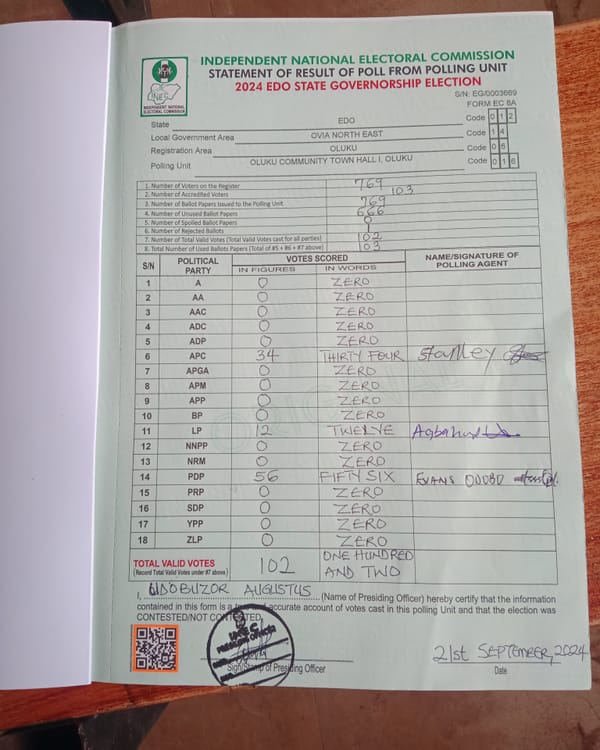 INDEPENDENT NATIONAL ELECTORAL COMMISSION
STATEMENT OF RESULT OF POLL FROM POLLING UNIT
2024 EDO STATE GOVERNORSHIP ELECTION
INEC
INDEPENDENT NATIONAL ELECTORAL COMMISSION
S/N: EG/0003669
FORM EC 8A
State EDO Code 0 1 2
Local Government Area OVIA NORTH EAST Code 1 4
Registration Area OLUKU Code 0 6
Polling Unit OLUKU COMMUNITY TOWN HALL I, OLUKU Code 0 1 6
1. Number of Voters on the Register 769
2. Number of Accredited Voters 103
3. Number of Ballot Papers Issued to the Polling Unit 769
4. Number of Unused Ballot Papers 666
5. Number of Spoiled Ballot Papers 0
6. Number of Rejected Ballots
7. Number of Total Valid Votes (Total Valid Votes cast for all parties) 102
8. Total Number of Used Ballots Papers (Total of #5 + #6 + #7 above) 103
S/N POLITICAL PARTY VOTES SCORED NAME/SIGNATURE OF POLLING AGENT
IN FIGURES IN WORDS
1 A 0 ZERO
2 AA 0 ZERO
3 AAC 0 ZERO
4 ADC 0 ZERO
5 ADP 0 ZERO
6 APC 34 THIRTY FOUR Stanley
7 APGA 0 ZERO
8 APM 0 ZERO
9 APP 0 ZERO
10 BP 0 ZERO
11 LP 12 TWELVE
12 NNPP 0 ZERO
13 NRM 0 ZERO
14 PDP 56 FIFTY SIX EVANS
15 PRP 0 ZERO
16 SDP 0 ZERO
17 YPP 0 ZERO
18 ZLP 0 ZERO
TOTAL VALID VOTES 102 ONE HUNDRED
(Record Total Valid Votes under #7 above) AND TWO
I, UDOBUZOR AUGUSTUS (Name of Presiding Officer) hereby certify that the information
contained in this form is a true and accurate account of votes cast in this polling Unit and that the election was
CONTESTED/NOT CONTESTED.
INEC
PRESIDING OFFICER
21st SEPTEMBER, 2024
Sign/Stamp of Presiding Officer Date